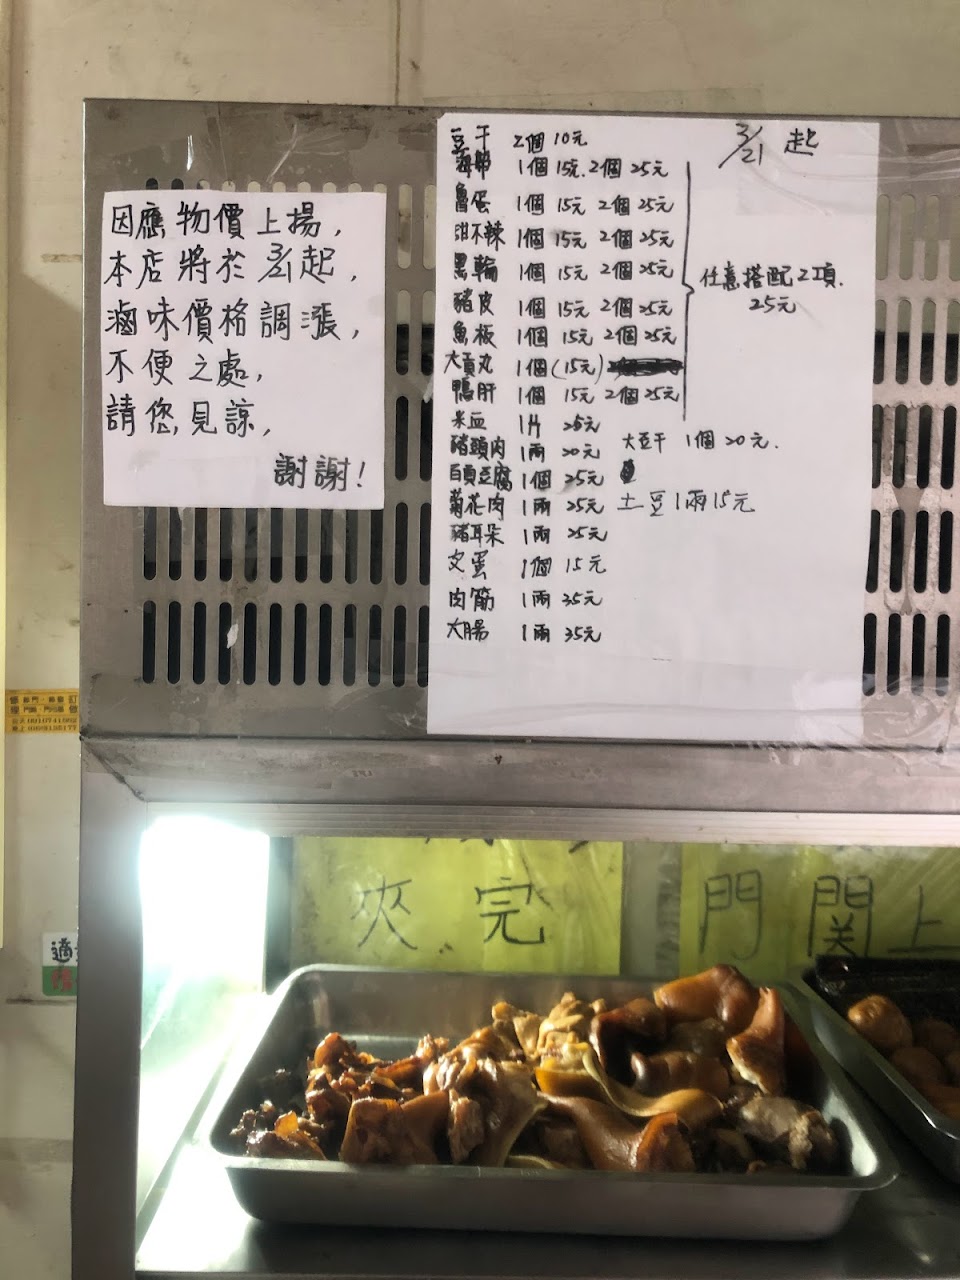 因應物價上揚,
本店將於3/21起,
滷味價格調漲,
不便之處,
請您見諒,
謝謝!
3/21 起
豆干 2個 10元
海帶 1個 15元. 2個 25元
魯蛋 1個 15元 2個 25元
甜不辣 1個 15元 2個 25元
黑輪 1個 15元 2個 25元
豬皮 1個 15元 2個 25元
魚板 1個 15元 2個 25元
大貢丸 1個(15元)
鴨肝 1個 15元 2個 25元
任意搭配2項.
25元
米血 1片 25元
豬頭肉 1兩 20元
百頁豆腐 1個 25元
菊花肉 1兩 25元
豬耳朵 1兩 25元
皮蛋 1個 15元
肉筋 1兩 35元
大腸 1兩 35元
大豆干 1個 20元.
土豆1兩15元
夾完
門關上